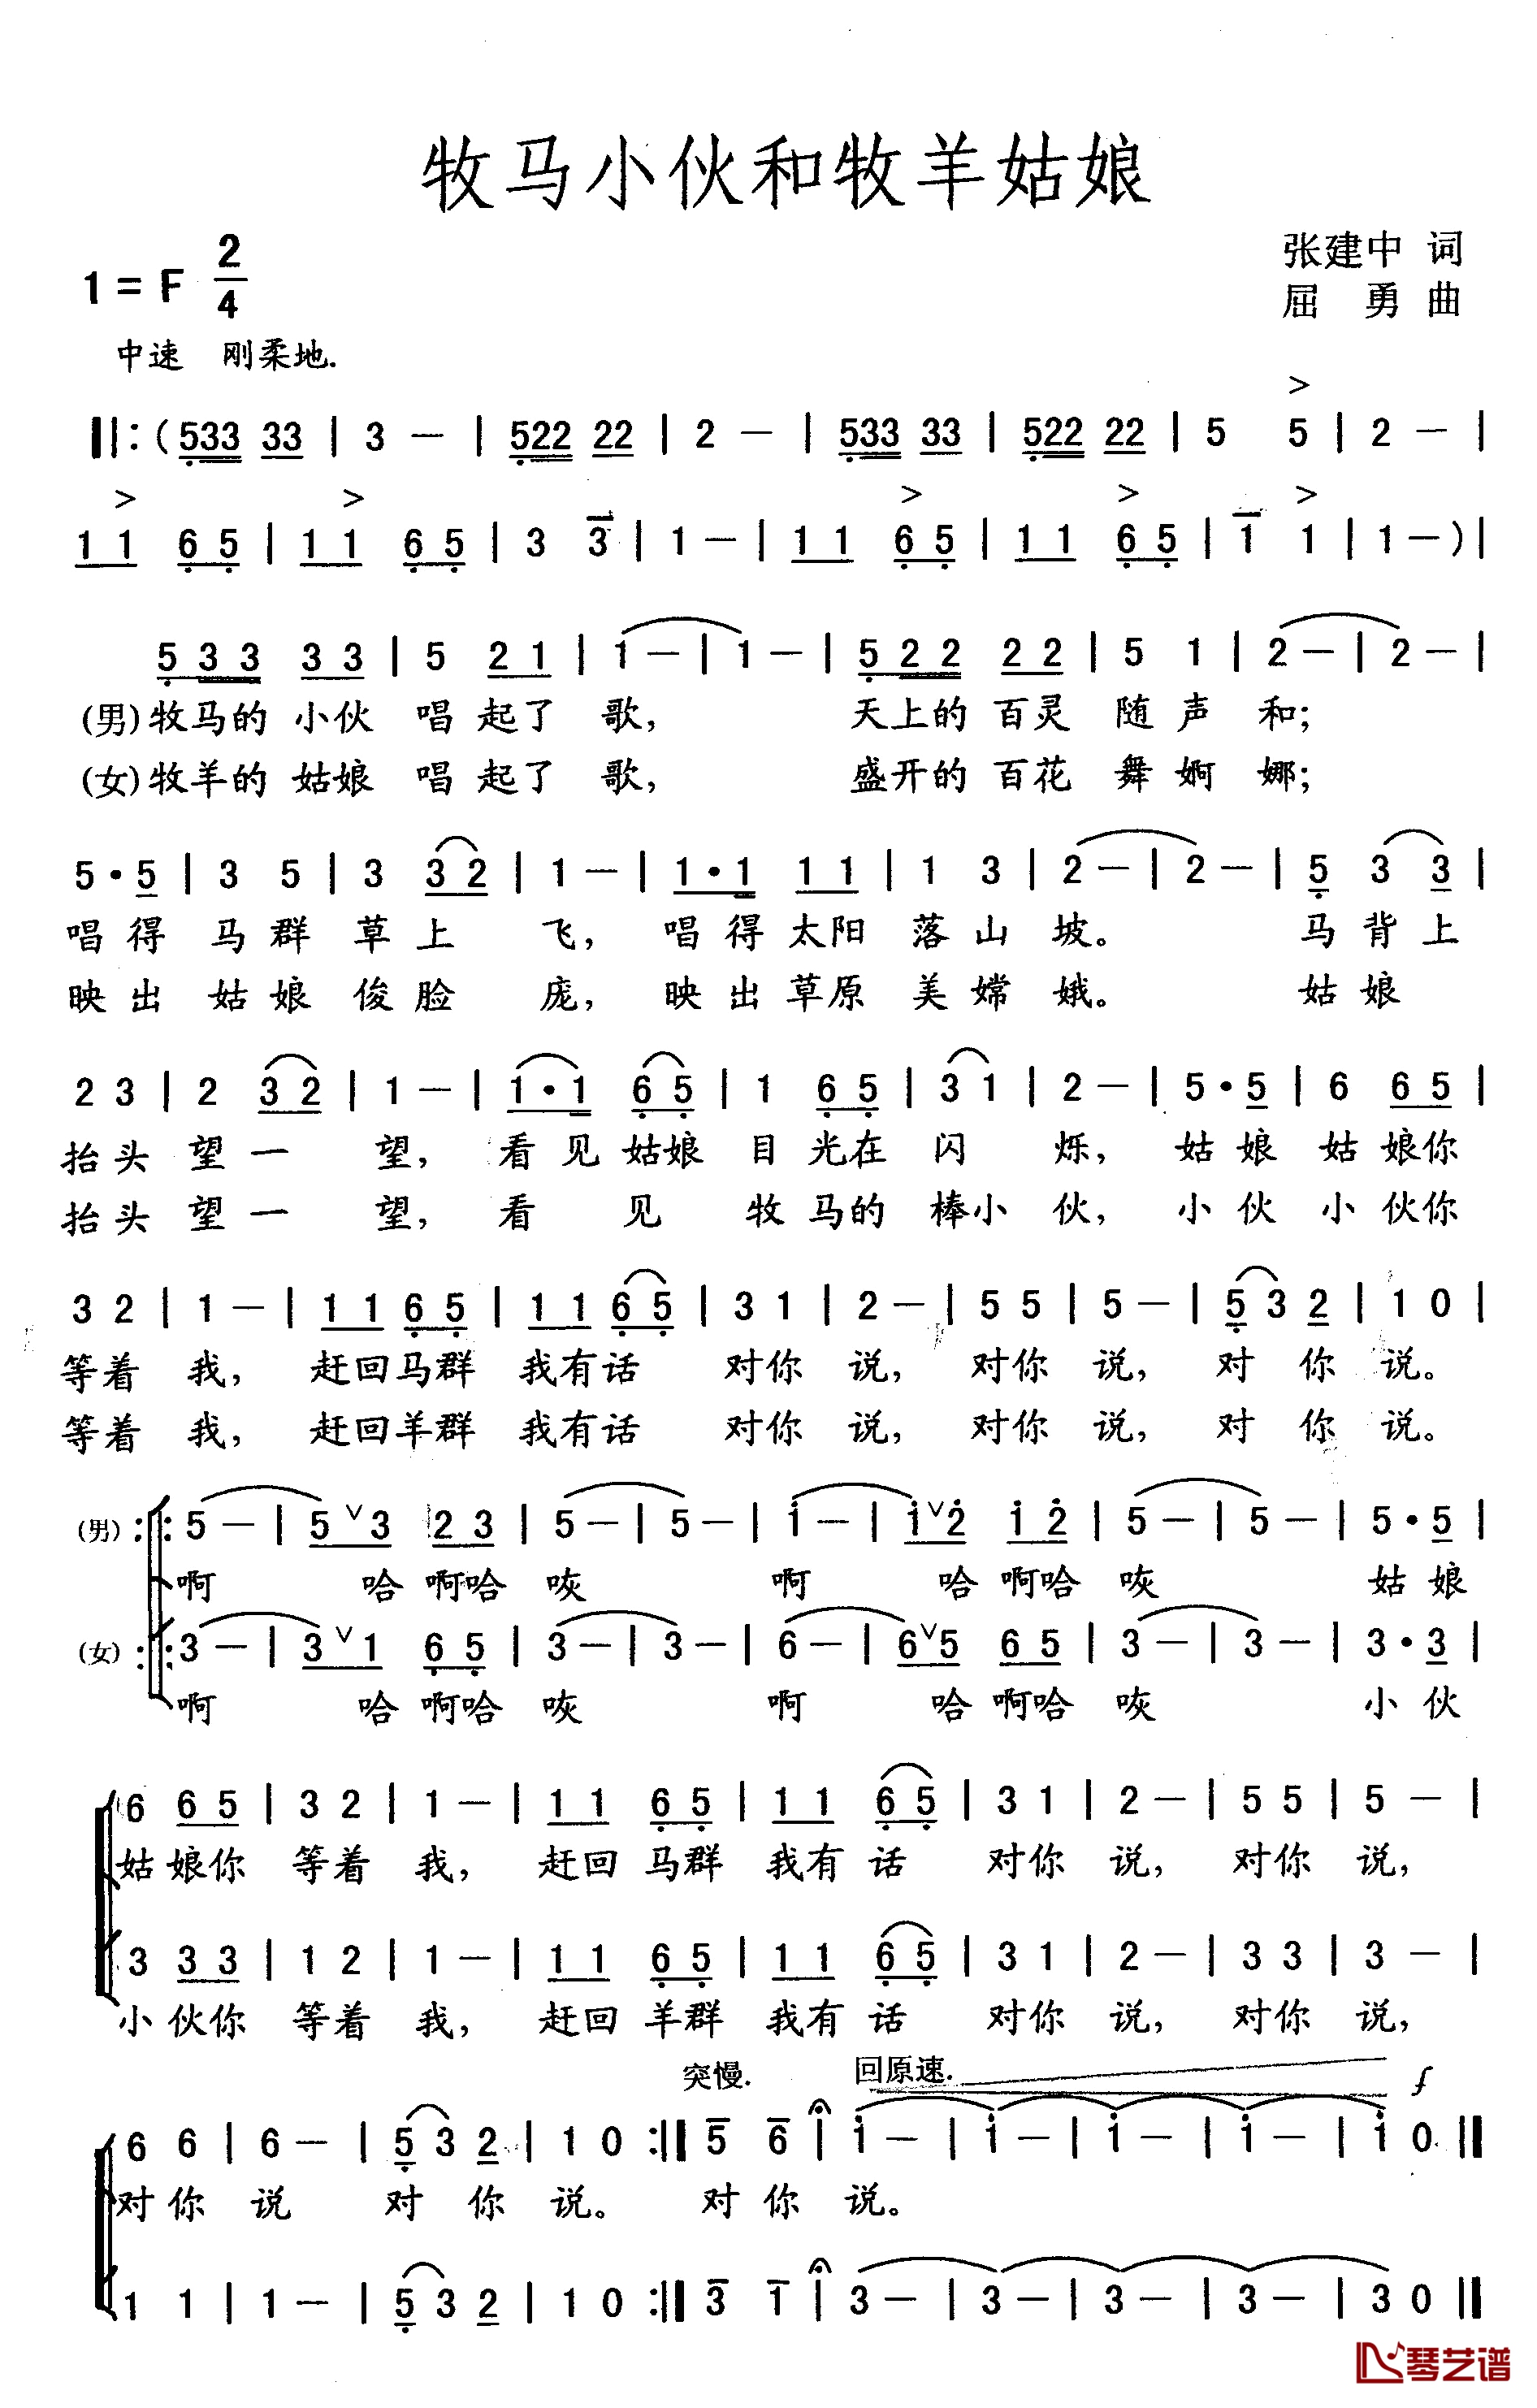 牧马小伙和牧羊姑娘
1 = F 2/4
张建中 词
屈 勇 曲
中速 刚柔地.
‖: ( 533 33 | 3 — | 522 22 | 2 — | 533 33 | 522 22 | 5 5 | 2 — |
1 1 6 5 | 1 1 6 5 | 3 3 | 1 — | 1 1 6 5 | 1 1 6 5 | 1 1 | 1 — ) |
5 3 3 3 3 | 5 2 1 | 1 — | 1 — | 5 2 2 2 2 | 5 1 | 2 — | 2 — |
(男) 牧马的 小伙 唱 起了 歌, 天上的 百灵 随 声 和;
(女) 牧羊的 姑娘 唱 起了 歌, 盛开的 百花 舞 婀 娜;
5 • 5 | 3 5 | 3 3 2 | 1 — | 1 • 1 1 1 | 1 3 | 2 — | 2 — | 5 3 3 |
唱 得 马 群 草 上 飞, 唱 得 太阳 落 山 坡。 马 背 上
映 出 姑 娘 俊 脸 庞, 映 出 草原 美 嫦 娥。 姑 娘
2 3 | 2 3 2 | 1 — | 1 • 1 6 5 | 1 6 5 | 3 1 | 2 — | 5 • 5 | 6 6 5 |
抬头 望 一 望, 看 见 姑娘 目 光在 闪 烁, 姑 娘 姑 娘你
抬头 望 一 望, 看 见 牧 马的 棒小 伙, 小 伙 小 伙你
3 2 | 1 — | 1 1 6 5 | 1 1 6 5 | 3 1 | 2 — | 5 5 | 5 — | 5 3 2 | 1 0 |
等着 我, 赶回马群 我有话 对你 说, 对你 说, 对 你 说。
等着 我, 赶回羊群 我有话 对你 说, 对你 说, 对 你 说。
(男) :‖: 5 — | 5 ∨ 3 2 3 | 5 — | 5 — | i — | i ∨ 2 i 2 | 5 — | 5 — | 5 • 5 |
啊 哈 啊哈 咴 啊 哈 啊哈 咴 姑 娘
(女) :‖: 3 — | 3 ∨ 1 6 5 | 3 — | 3 — | 6 — | 6 ∨ 5 6 5 | 3 — | 3 — | 3 • 3 |
啊 哈 啊哈 咴 啊 哈 啊哈 咴 小 伙
6 6 5 | 3 2 | 1 — | 1 1 6 5 | 1 1 6 5 | 3 1 | 2 — | 5 5 | 5 — |
姑 娘你 等着 我, 赶回 马群 我有 话 对你 说, 对你 说,
3 3 3 | 1 2 | 1 — | 1 1 6 5 | 1 1 6 5 | 3 1 | 2 — | 3 3 | 3 — |
小 伙你 等着 我, 赶回 羊群 我有 话 对你 说, 对你 说,
突慢. 回原速. f
6 6 | 6 — | 5 3 2 | 1 0 :‖ 5 6 | i — | i — | i — | i — | i 0 ‖
对 你 说 对 你 说。 对 你 说。
1 1 | 1 — | 5 3 2 | 1 0 :‖ 3 1 | 3 — | 3 — | 3 — | 3 — | 3 0 ‖
琴艺谱